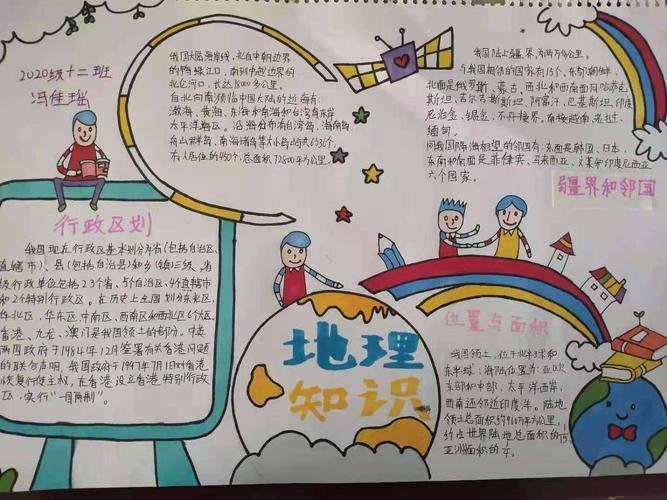 2020级十二班
冯佳瑶
行政区划
我国现在行政区基本划分为省(包括自治区、
直辖市)、县(包括自治县)和乡(镇)三级。省
级行政单位包括23个省、5个自治区、4个直辖市
和2个特别行政区。在历史上全国划分东北区、
华北区、华东区、中南区、西南区和西北区6个大区。
香港、九龙、澳门是我国领土的部分。中英
两国政府于1984年12月签署有关香港问题
的联合声明,我国政府于1997年7月1日对香港
恢复行使主权,在香港设立香港特别行政
区,实行"一国两制"。
我国大陆海岸线,北自中朝边界
的鸭绿江口,南到中越边界的
北仑河口,长达18000多公里。
自北向南濒临中国大陆的近海有:
渤海、黄海、东海和南海和台湾岛东岸
太平洋海区。沿海分布有台湾岛、海南岛、
舟山群岛、南海诸岛等大小岛屿共6536个,
有人居住的450个,总面积72800平方公里。
我国陆上疆界,为两万多公里。
与我国相邻的国家有15个,东邻朝鲜,
北面是俄罗斯、蒙古,西北和西南面月哈萨克
斯坦、吉尔吉斯斯坦、阿富汗、巴基斯坦、印度
尼泊尔、锡金、不丹接界,南接越南、老挝、
缅甸。
同我国隔海相望的邻国有:东面是韩国、日本,
东南和南面是菲律宾、马来西亚、文莱和印度尼西亚
六个国家。
疆界和邻国
地理
知识
位置与面积
我国领土,位于北半球和
东半球;海陆位置为:亚欧大
东部和中部,太平洋西岸,
西南还邻近印度洋。陆地
领土总面积约960万平方公里,
约占世界陆地总面积的1/15,
亚洲面积的1/4。